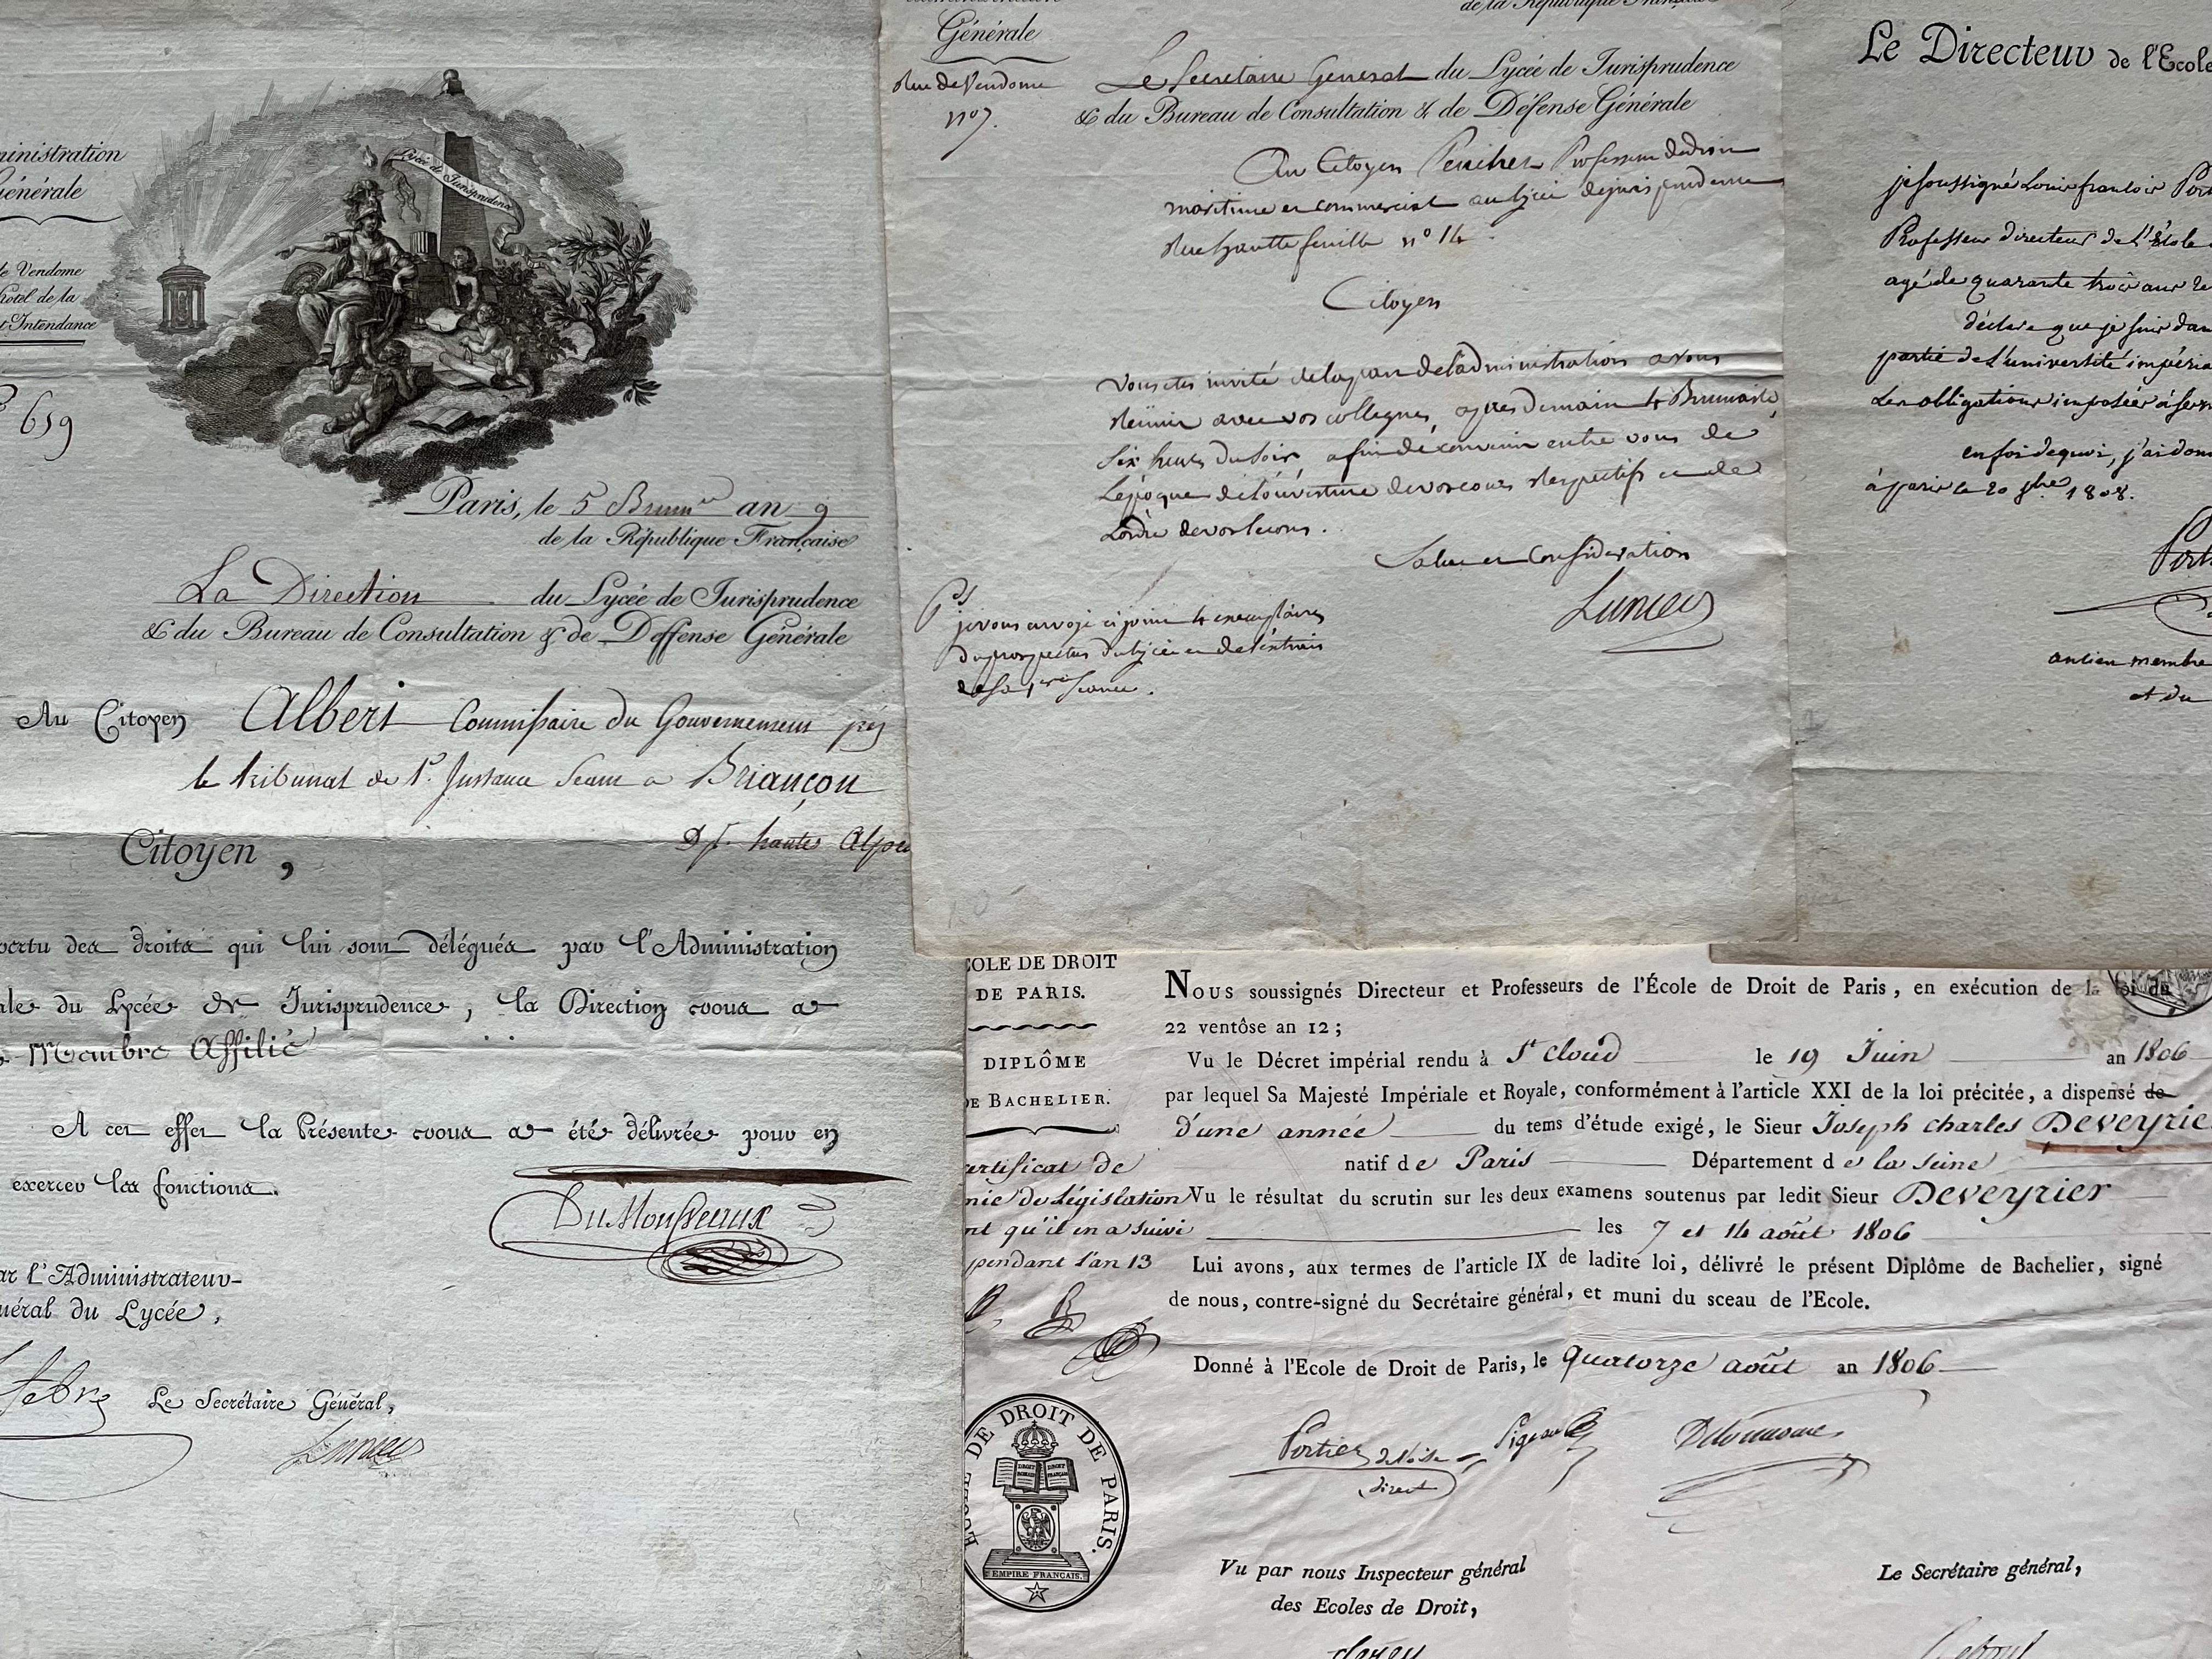 ministration
Générale
de Vendome
hotel de la
t Intendance
659
Lycée de Jurisprudence
Paris, le 5 Brum.re an 9
de la République Française
La Direction du Lycée de Jurisprudence
& du Bureau de Consultation & de Deffense Générale
Au Citoyen Albert Commissaire du Gouvernement près
le tribunal de 1e Instance Seant a Briançon
Dpt hautes Alpes
Citoyen,
vertu des droits qui lui sont délégués par l'Administration
ale du Lycée de Jurisprudence, la Direction vous a
Membre Affilié
A cet effet la Présente vous a été délivrée pour en
exercer les fonctions.
DuMousseaux
ar l'Administrateur-
néral du Lycée,
Le Secrétaire Général,
Générale
Rue de Vendome
n° 7.
de la République Française
Le Secretaire General du Lycée de Jurisprudence
& du Bureau de Consultation & de Défense Générale
Au Citoyen Professeur de droit
maritime et commercial au lycée de jurisprudence
Rue hautte feuille n° 14
Citoyen
Vous etes invité de la part de l'administration a vous
Réunir avec vos collegues, après demain 4 Brumaire,
six heures du soir afin de convenir entre vous de
l'époque de l'ouverture de vos cours respectifs et de
l'ordre de vos lecons.
Salut et Consideration
Ps
je vous envoye ci joint 4 exemplaires
du prospectus du lycée et de l'extrait
de sa 1ere seance.
Le Directeur de l'Ecole
je soussigné Louis francois Port
Professeur directeur de l'école
agé de quarante trois ans
déclare que je suis dan
partie de l'université impéria
les obligations imposées à ses
en foi de quoi, j'ai don
à paris le 20 1808.
Port
ancien membre
et du
COLE DE DROIT
DE PARIS.
DIPLÔME
DE BACHELIER.
ertificat de
mie de Législation
nt qu'il en a suivi
pendant l'an 13
Nous soussignés Directeur et Professeurs de l'École de Droit de Paris, en exécution de la loi du
22 ventôse an 12;
Vu le Décret impérial rendu à St Cloud le 19 Juin an 1806
par lequel Sa Majesté Impériale et Royale, conformément à l'article XXI de la loi précitée, a dispensé de
d'une année du tems d'étude exigé, le Sieur Joseph Charles Deveyrie
natif de Paris Département de la Seine
Vu le résultat du scrutin sur les deux examens soutenus par ledit Sieur Deveyrier
les 7 et 14 août 1806
Lui avons, aux termes de l'article IX de ladite loi, délivré le présent Diplôme de Bachelier, signé
de nous, contre-signé du Secrétaire général, et muni du sceau de l'Ecole.
Donné à l'Ecole de Droit de Paris, le quatorze août an 1806
Portiez de l'Oise
Pigeau
Delvincourt
direct
ECOLE DE DROIT DE PARIS.
DROIT ROMAIN DROIT FRANÇAIS
EMPIRE FRANÇAIS.
Vu par nous Inspecteur général
des Ecoles de Droit,
Le Secrétaire général,